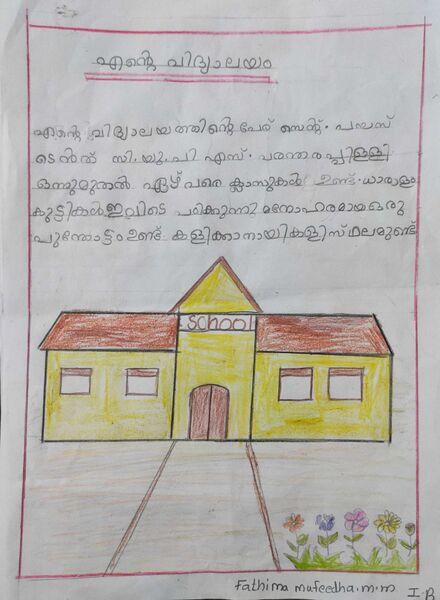 എന്റെ വിദ്യാലയം
എന്റെ വിദ്യാലയത്തിന്റെ പേര് സെന്റ്. പയസ്
ടെൻത് സി.യു.പി എസ്. പരന്തരപ്പിള്ളി
ഒന്നുമുതൽ ഏഴ് വരെ ക്ലാസുകൾ ഉണ്ട്. ധാരാളം
കുട്ടികൾ ഇവിടെ പഠിക്കുന്നു മനോഹരമായ ഒരു
പൂന്തോട്ടം ഉണ്ട് കളിക്കാനായി കളിസ്ഥലമുണ്ട്
SCHOOL
Fathima mufeedha.m.m I-B